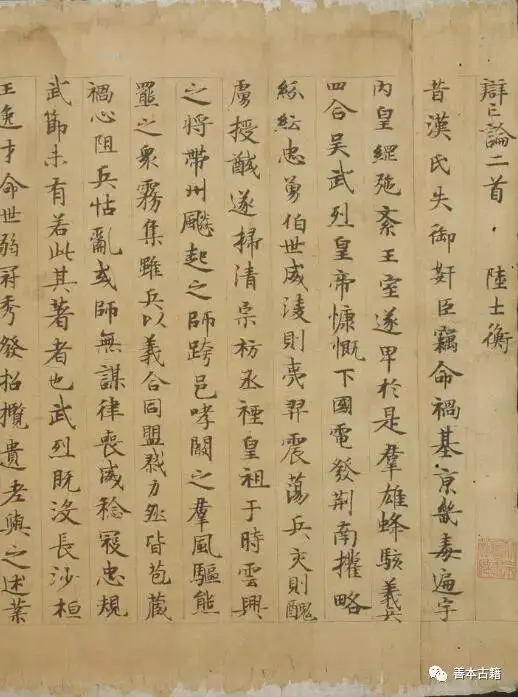 辯亡論二首 陸士衡
昔漢氏失御奸臣竊命禍基京畿毒遍宇
內皇綱弛紊王室遂卑於是羣雄蜂駭義兵
四合吳武烈皇帝慷慨下國電發荊南權略
紛紜忠勇伯世威淩則夷羿震蕩兵交則醜
虜授馘遂掃清宗祊丞禋皇祖于時雲興
之將帶州飈起之師跨邑哮闞之羣風驅熊
羆之衆霧集雖兵以義合同盟戮力然皆苞藏
禍心阻兵怙亂或師無謀律喪威稔寇忠規
武節未有若此其著者也武烈既沒長沙桓
王逸才命世弱冠秀發招攬遺老與之述業
善本古籍